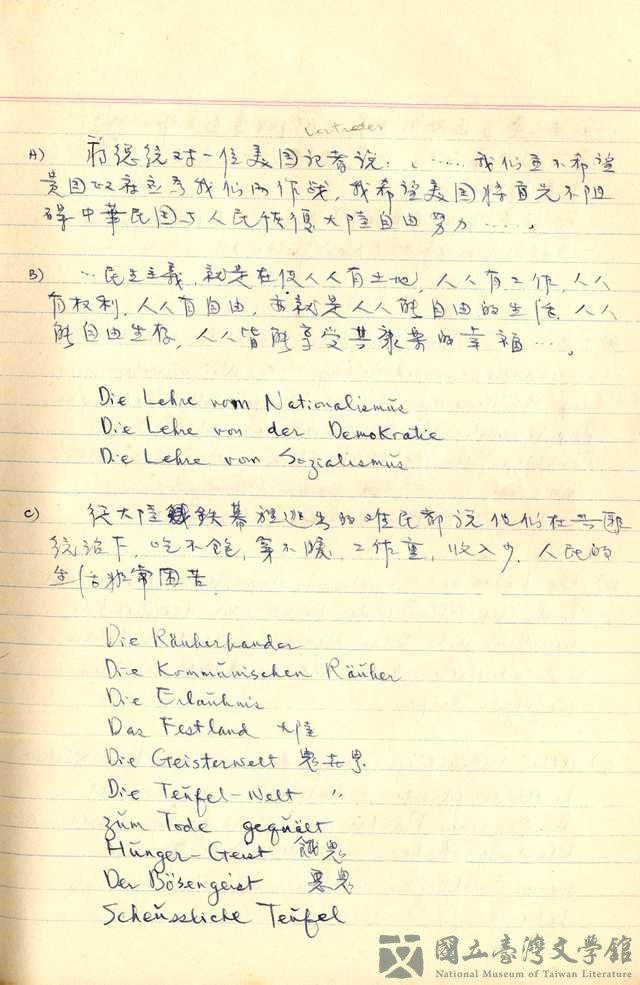 Vertreter
A) 蒋總統对一位美国记者说：「……我们並不希望
贵国政府应为我们而作战，我希望美国将首先不阻
碍中華民国与人民恢復大陸自由努力……」
B) …民生主義，就是在使人人有土地，人人有工作，人人
有权利，人人有自由，亦就是人人能自由的生活，人人
能自由生存，人人皆能享受其康樂的幸福…」
Die Lehre vom Nationalismus
Die Lehre von der Demokratie
Die Lehre vom Sozialismus
C) 従大陸鉄幕裡逃出的难民都说他们在共匪
统治下，吃不飽，穿不暖，工作重，收入少，人民的
生活非常困苦.
Die Räuberbander
Die Kommunischen Räuber
Die Erlaubnis
Das Festland 大陸
Die Geisterwelt 鬼世界
Die Teufel-Welt 〃
zum Tode gequält
Hunger-Geist 餓鬼
Der Bösengeist 惡鬼
Scheussliche Teufel
國立臺灣文學館
National Museum of Taiwan Literature